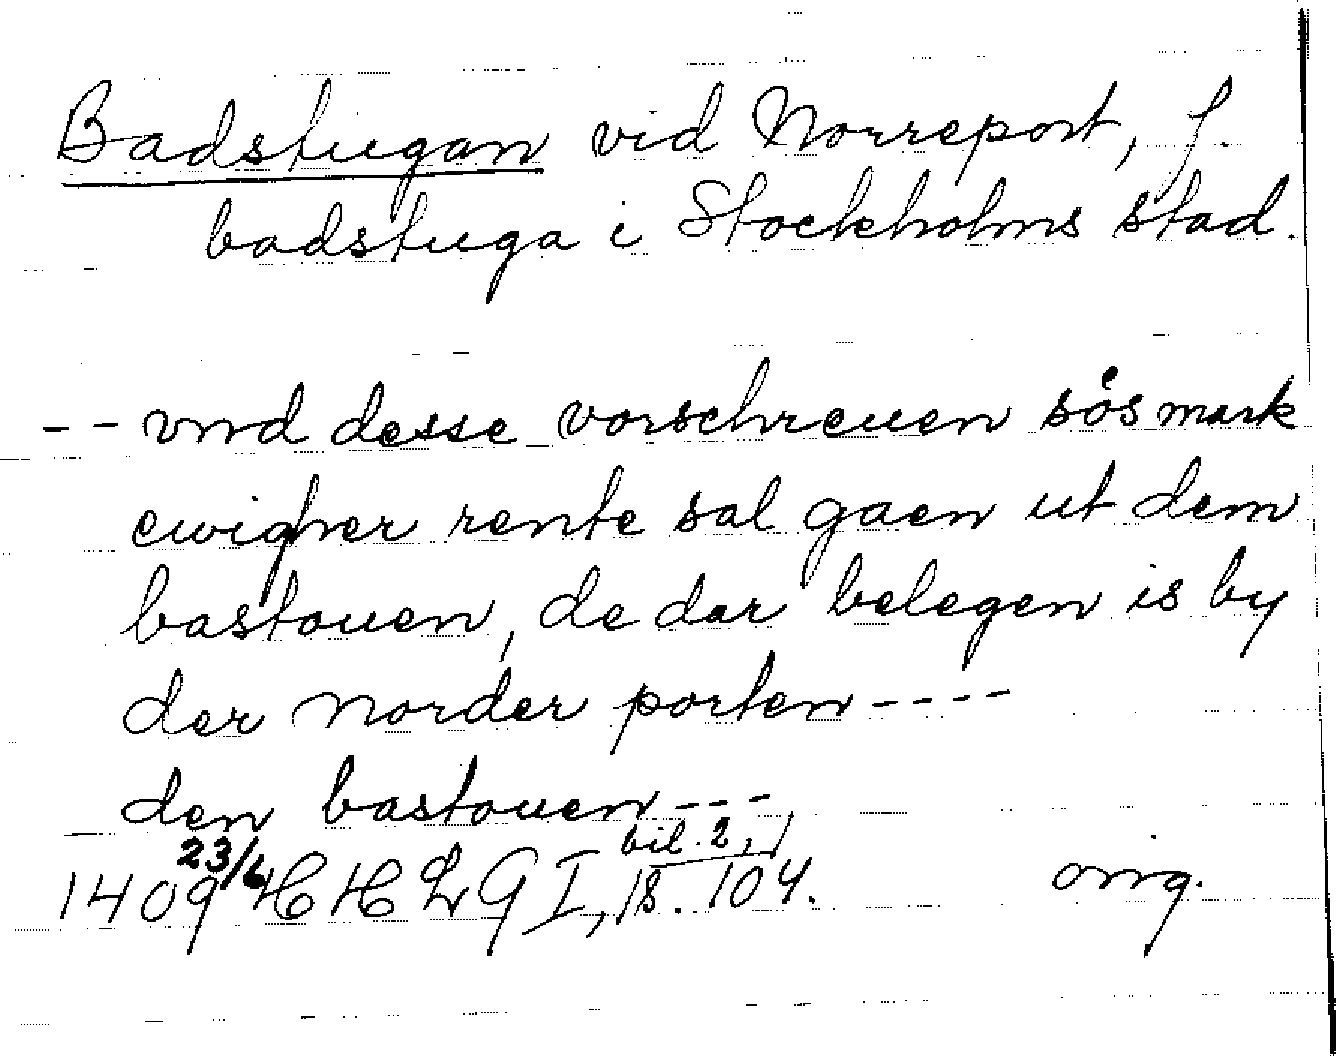 Badstugan vid Norreport, f.
badstuga i Stockholms stad.
-- vnd desse vorschreuen sös mark
ewigher rente sal gaen ut dem
bastouen, de dar belegen is by
der norder porten ----
den bastouen ---
bil. 2,
1409 23/6 HHLG I, s. 104. orig.